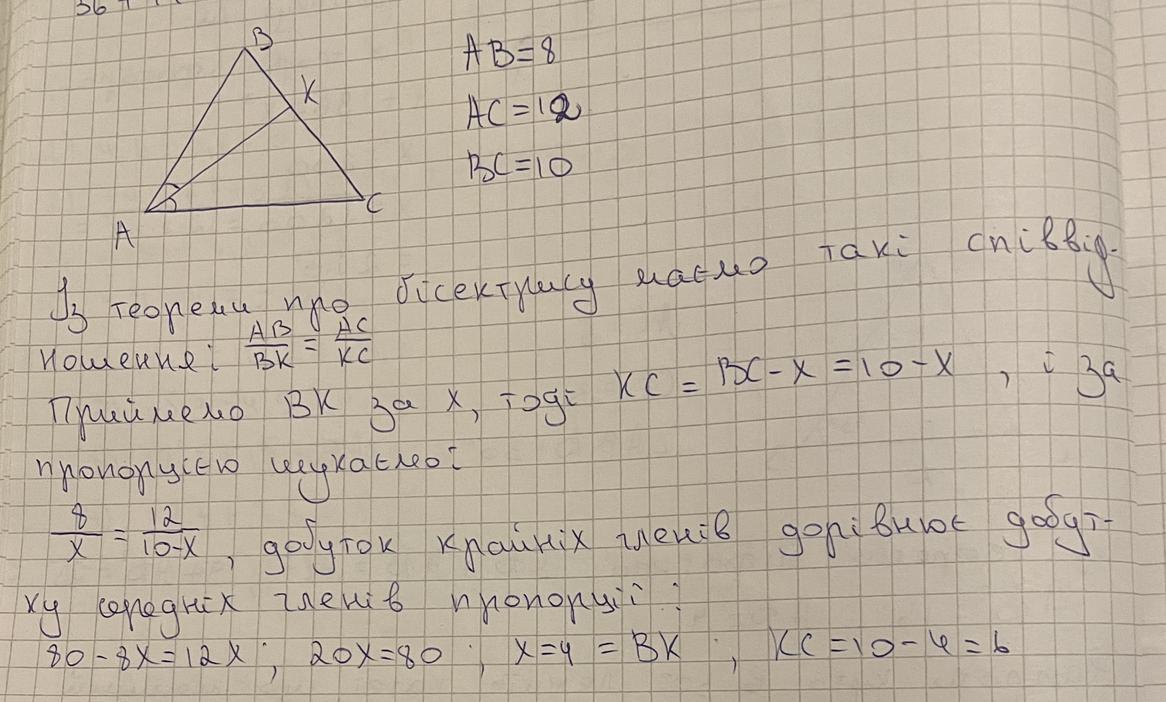 B
K
A
C
AB=8
AC=12
BC=10
Із теореми про бісектрису маємо такі співвід-
ношення: AB/BK = AC/KC
Приймемо BK за x, тоді KC = BC-x = 10-x , і за
пропорцією шукаємо:
8/x = 12/10-x , добуток крайніх членів дорівнює добут-
ку середніх членів пропорції:
80-8x=12x ; 20x=80 ; x=4 = BK ; KC=10-4=6